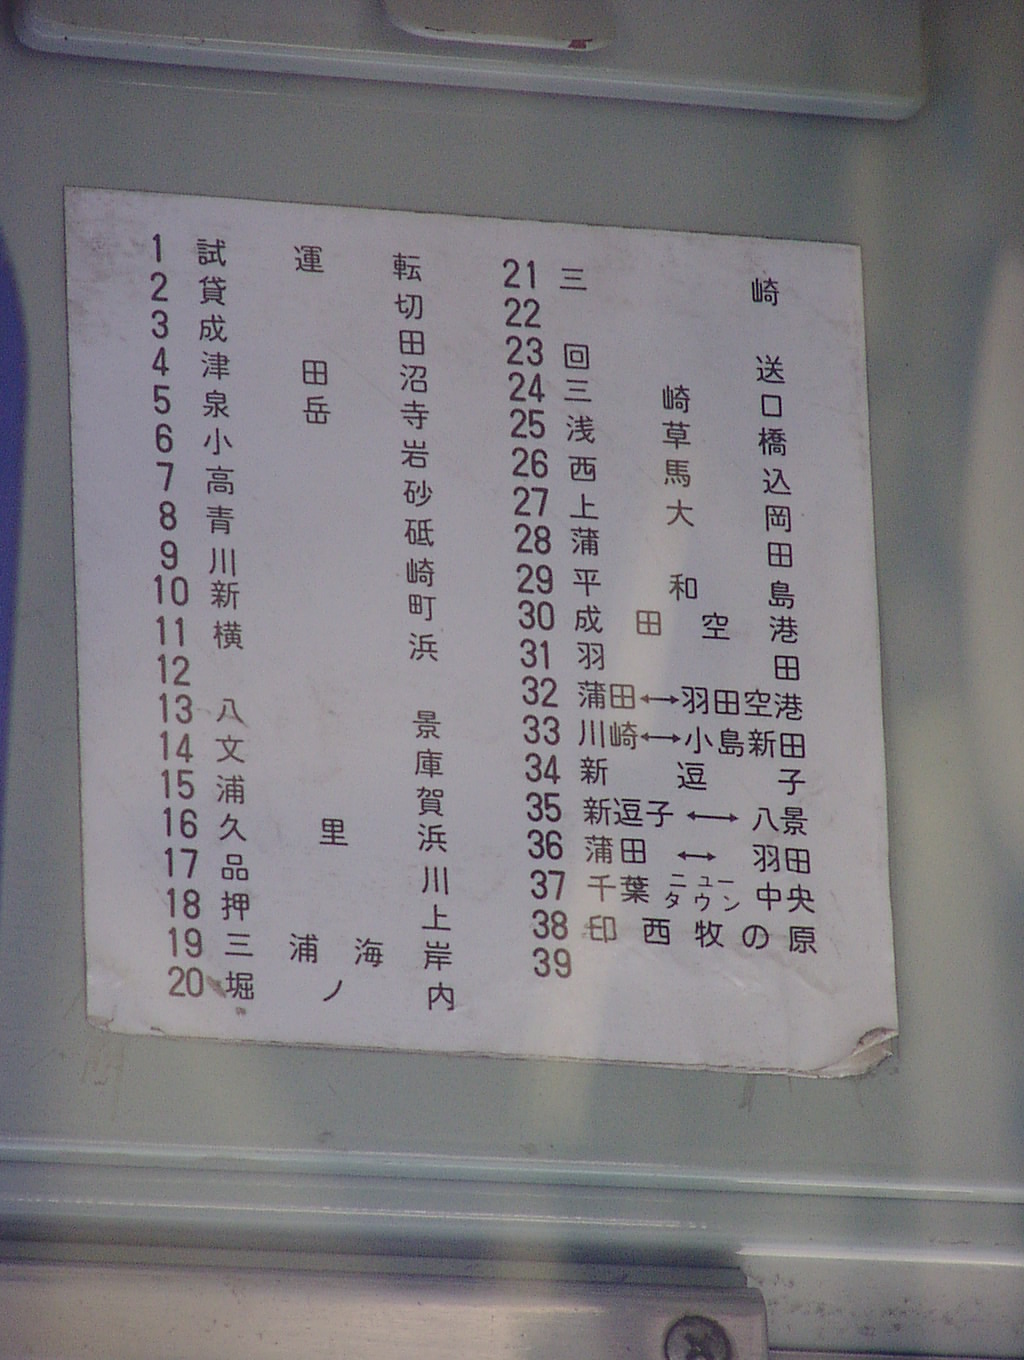 1 試運転
2 貸切
3 成田
4 津田沼
5 泉岳寺
6 小岩
7 高砂
8 青砥
9 川崎
10 新町
11 横浜
12
13 八景
14 文庫
15 浦賀
16 久里浜
17 品川
18 押上
19 三浦海岸
20 堀ノ内
21 三崎
22
23 回送
24 三崎口
25 浅草橋
26 西馬込
27 上大岡
28 蒲田
29 平和島
30 成田空港
31 羽田
32 蒲田↔羽田空港
33 川崎↔小島新田
34 新逗子
35 新逗子↔八景
36 蒲田↔羽田
37 千葉ニュータウン中央
38 印西牧の原
39